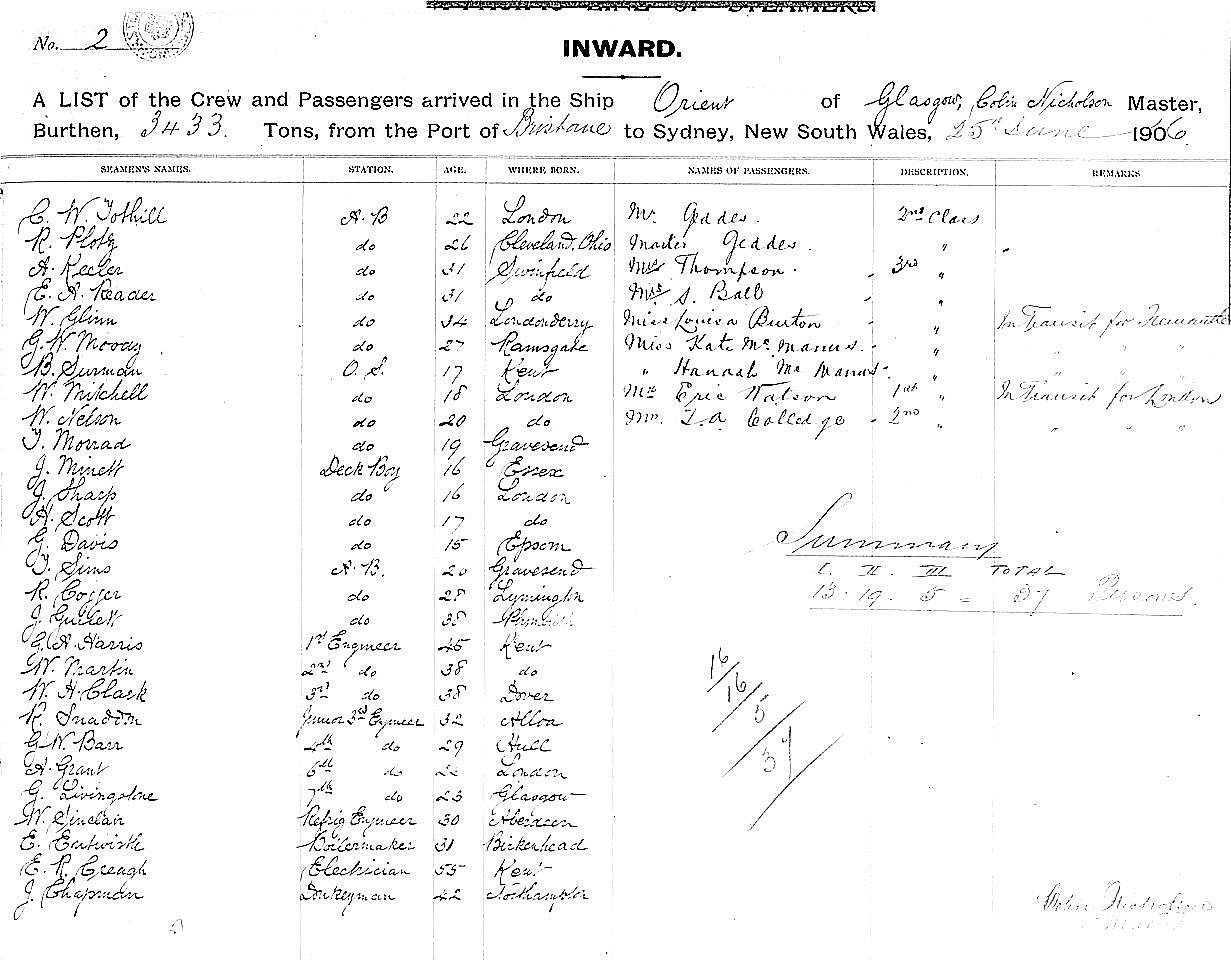 PACIFIC LINE OF STEAMERS
No. 2
INWARD.
A LIST of the Crew and Passengers arrived in the Ship Orient of Glasgow, Colin Nicholson Master,
Burthen, 3433. Tons, from the Port of Brisbane to Sydney, New South Wales, 25th June 1906
SEAMEN'S NAMES. STATION. AGE. WHERE BORN. NAMES OF PASSENGERS. DESCRIPTION. REMARKS
C. W. Tothill A. B 22 London Mr. Geddes. 2nd Class
R. Plotz do 26 Cleveland, Ohio Master Geddes. "
A. Keeler do 31 Swinfield Mrs Thompson. 3rd "
E. A. Reader do 31 do Mrs S. Ball "
W. Glinn do 34 Londonderry Miss Louisa Burton " In Transit for Fremantle
G. W. Moody do 27 Ramsgate Miss Kate McManus. " " " "
B. Surman O. S. 17 Kent " Hannah McManus. " " " "
W. Mitchell do 18 London Mr Eric Watson 1st " In Transit for London
W. Nelson do 20 do Mr. T. A. Colledge 2nd " " " "
T. Morrad do 19 Gravesend
J. Minett Deck Boy 16 Essex
J. Sharp do 16 London
A. Scott do 17 do
G. Davis do 15 Epsom
Summary
T. Sims A. B. 20 Gravesend
I. II. III TOTAL
R. Cogger do 28 Lymington
13. 19. 5 = 37 Persons.
J. Gullett do 38
G. A. Harris 1st Engineer 45 Kent
W. Martin 2nd do 38 do
W. H. Clark 3rd do 38 Dover
R. Snaddon Junior 3rd Engineer 32 Alloa
G. W. Barr 4th do 29 Hull
A. Grant 6th do 22 London
G. Livingstone 7th do 23 Glasgow
W. Sinclair Refrig Engineer 30 Aberdeen
E. Entwistle Boilermaker 31 Birkenhead
E. R. Creagh Electrician 55 Kent
J. Chapman Donkeyman 42 Northampton
16/16/5/37
Colin Nicholson
Master